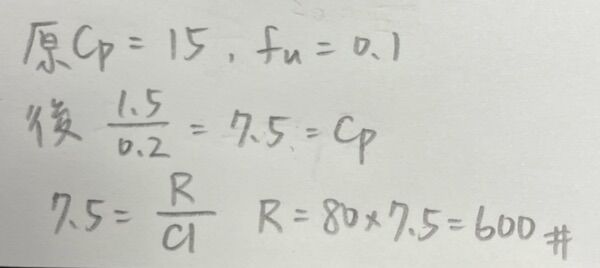 原Cp = 15, fu = 0.1
後 1.5/0.2 = 7.5 = Cp
7.5 = R/Cl R = 80×7.5 = 600 #